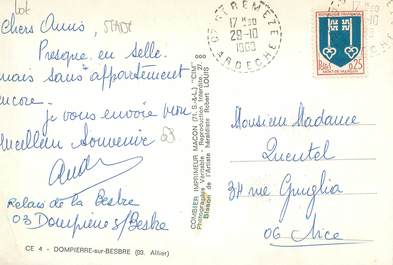 lot
Chers Amis,
Presque en selle
mais sans appartement
encore.
je vous envoie mon
meilleur Souvenir
68
Relais de la Besbre
03 Dompierre s/ Besbre
CE 4 - DOMPIERRE-sur-BESBRE (03. Allier)
COMBIER IMPRIMEUR MACON (71. S.-&-L.) "CIM"
Photographie Véritable - Reproduction Interdite. 27.
Blason de l'Artiste héraldiste Robert LOUIS
07 ST REMEZE
17 H30
28-10
ARDECHE
REPUBLIQUE FRANCAISE
0,25
MONT-DE-MARSAN
Monsieur Madame
Quentel
34 rue Guiglia
06 Nice